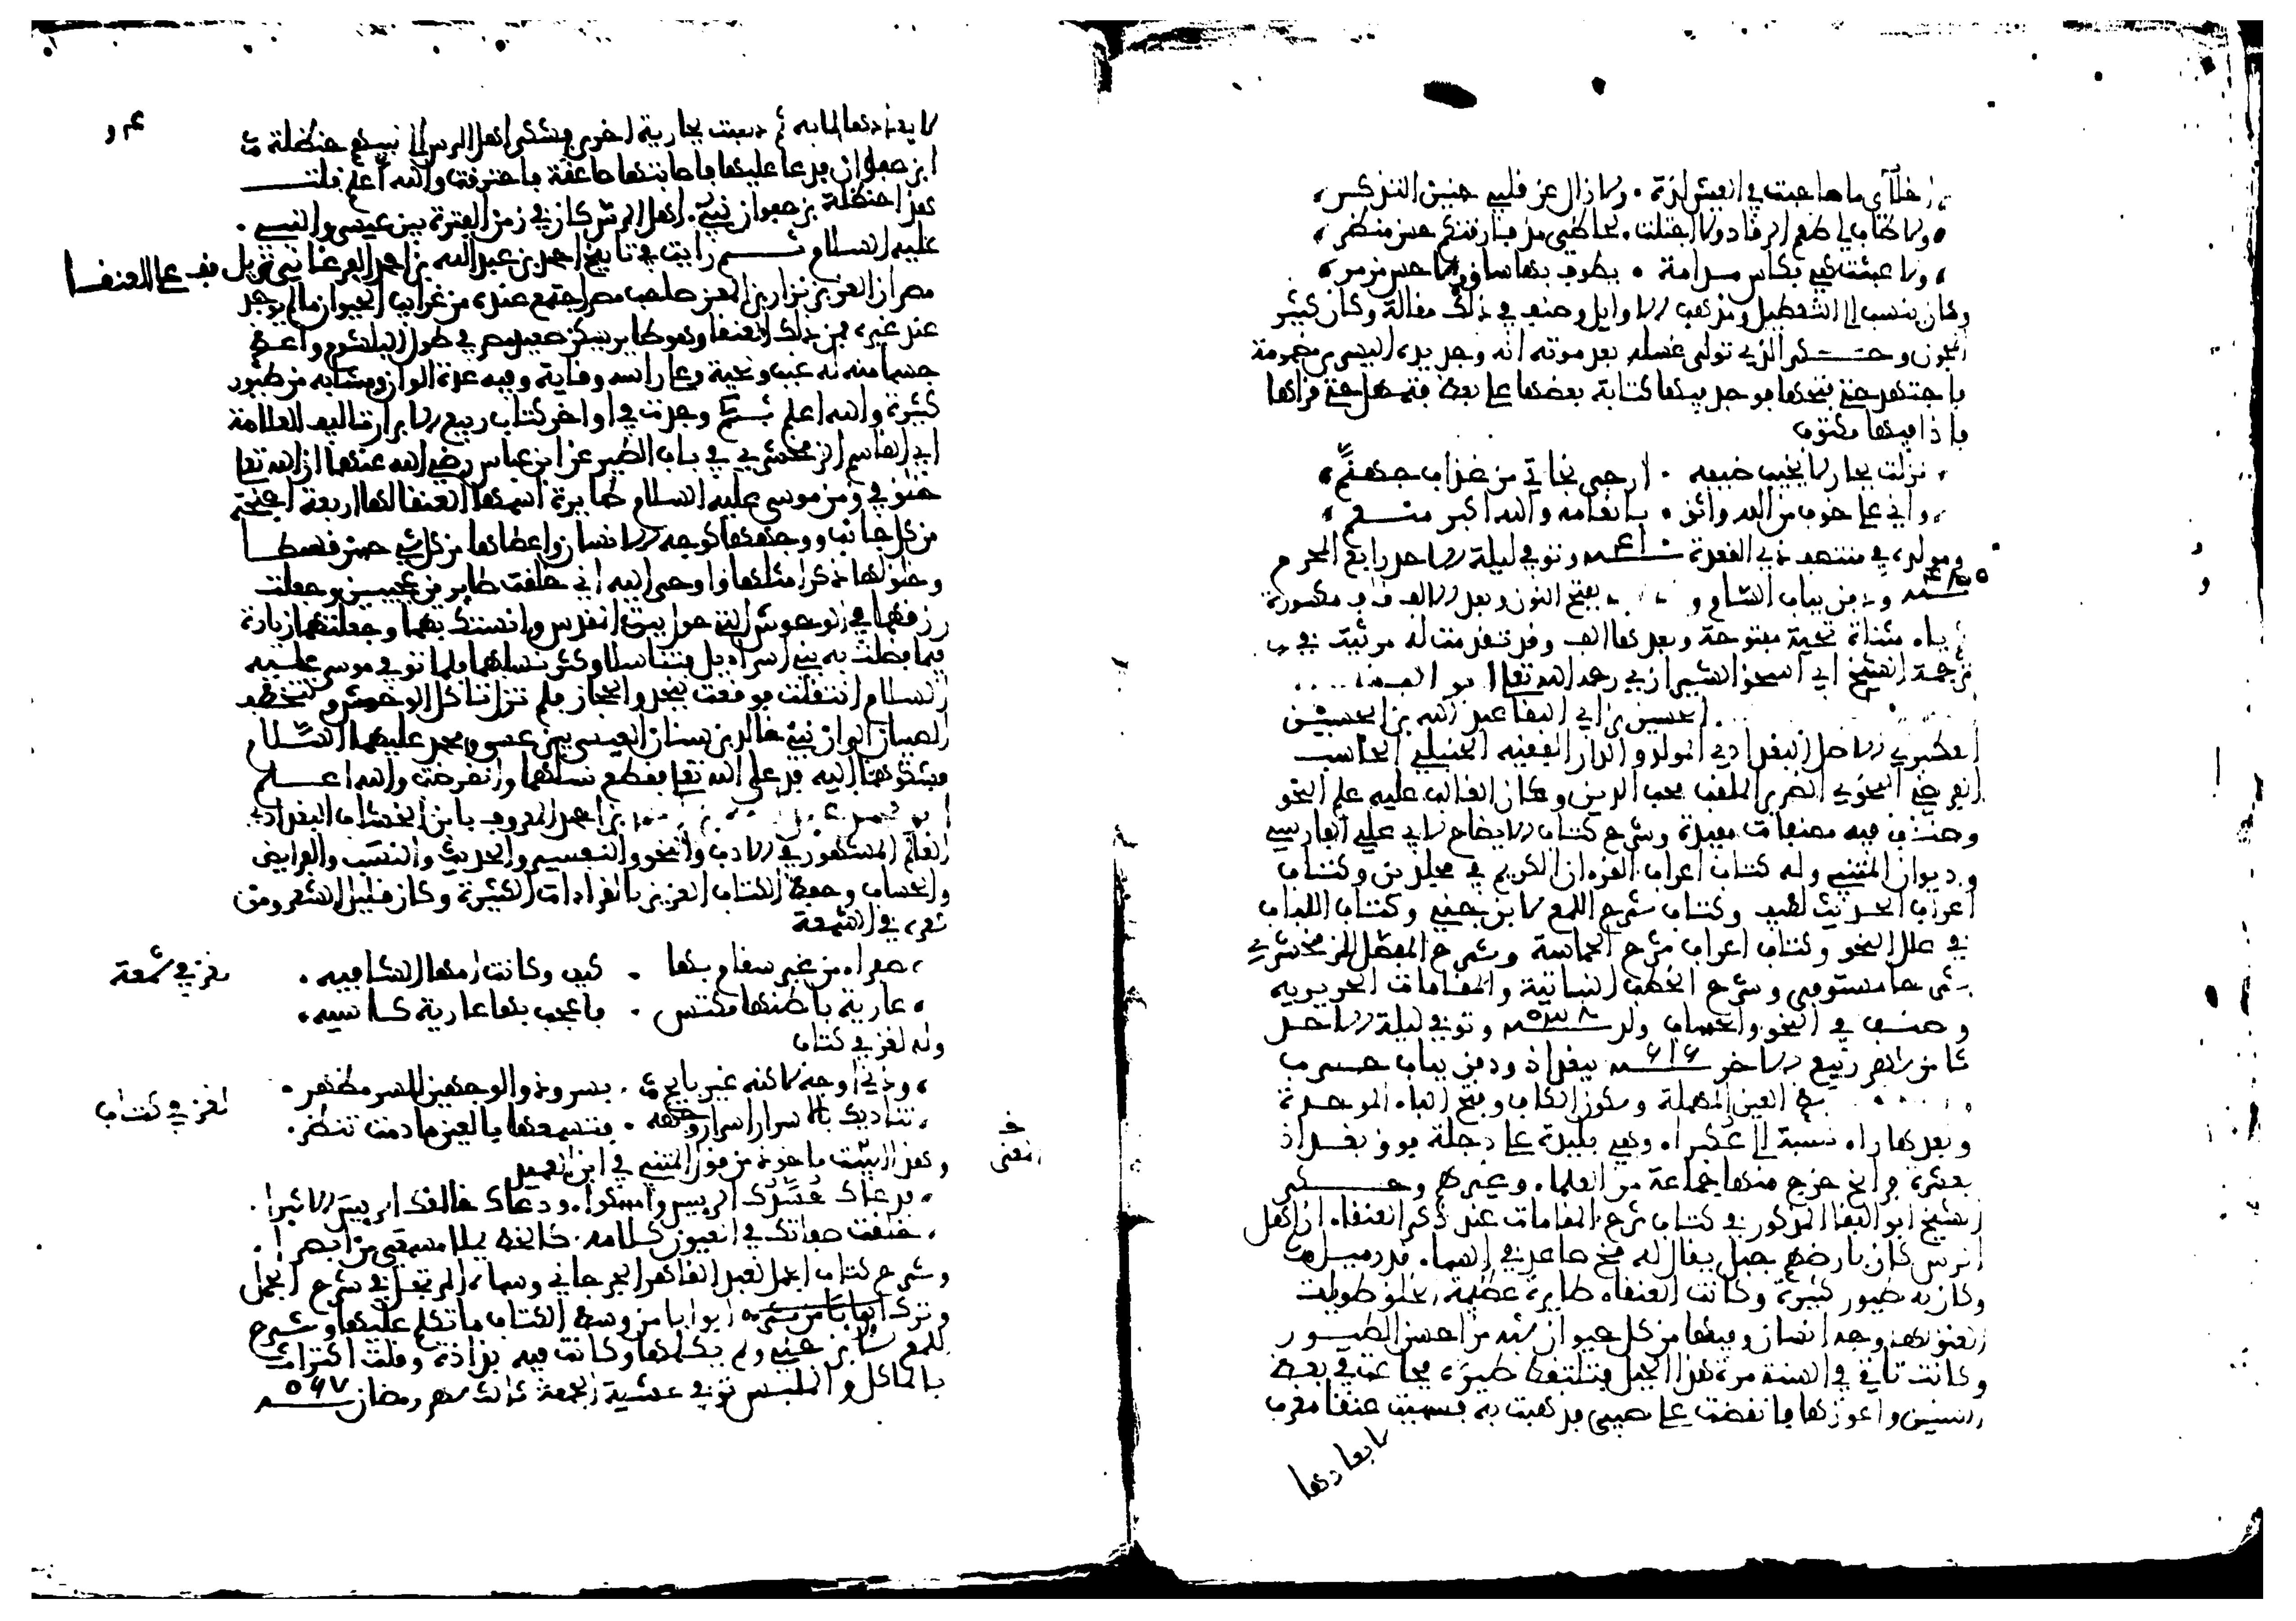 أخلاي ما صاحبت في العيش لذة . ولا زال عن قلبي حنين التذكر
ولا طاب لي طعم الرقاد ولا اجتلت . لحاظي مذ فارقتكم حسن منظر
ولا عبثت كفي بكاس مدامة . يطوف بها ساق ولا جس مزمر
وكان ينسب الى التعطيل ومذهب الاوايل وصنف في ذلك مقالة وكان كثير
المجون وحكى الذي تولى غسله بعد موته انه وجد يده اليسرى مضمومة
فاجتهد حتى فتحها فوجد فيها كتابة بعضها على بعض فتمهل حتى قراها
فاذا فيها مكتوب
نزلت بجار لا يخيب ضيفه . ارجي نجاتي من عذاب جهنم
واني على خوف من الله واثق . بانعامه والله اكبر منعم
ومولده في منتصف ذي القعدة وتوفي ليلة الاحد رابع المحرم
ودفن بباب الشام و بفتح النون وبعد الالف قاف مكسورة
ياء مثناة تحتية مفتوحة وبعدها الف وقد تقدمت له مرثية في
ترجمة الشيخ ابي اسحق الشيرازي رحمه الله تعالى ابو البقا
الحسين بن ابي البقا عبد الله بن الحسين
العكبري الاصل البغدادي المولد والدار الفقيه الحنبلي الحاسب
الفرضي النحوي الضرير الملقب محب الدين وكان الغالب عليه علم النحو
وصنف فيه مصنفات مفيدة وشرح كتاب الايضاح لابي علي الفارسي
وديوان المتنبي وله كتاب اعراب القرءان الكريم في مجلدين وكتاب
اعراب الحديث لطيف وكتاب شرح اللمع لابن جني وكتاب اللباب
في علل النحو وكتاب اعراب شرح الحماسة وشرح المفصل للزمخشري
شرحا مستوفى وشرح الخطب النباتية والمقامات الحريرية
وصنف في النحو والحساب ولد سنة ٥٣٨ وتوفي ليلة الاحد
ثامن شهر ربيع الاخر سنة ٦١٦ ببغداد ودفن بباب حرب
بضم العين المهملة وسكون الكاف وفتح الباء الموحدة
وبعدها راء نسبة الى عكبرا وهي بليدة على دجلة فوق بغداد
بعشرة فراسخ خرج منها جماعة من العلماء وغيرهم وحكى
الشيخ ابو البقا المذكور في كتاب شرح المقامات عند ذكر العنقاء ان اهل
الرس كان بارضهم جبل يقال له مخ صاعد في السماء قدر ميل
وكان به طيور كثيرة وكانت العنقاء طايرة عظيمة الخلق طويلة
العنق لها وجه انسان وفيها من كل حيوان شبه من احسن الطيور
وكانت تاتي في السنة مرة هذا الجبل فتلتقط طيره فجاعت في بعض
السنين واعوزها فانقضت على صبي فذهبت به فسميت عنقا مغرب
لابعادها
لابعادها لما به ثم ذهبت بجارية اخرى فشكى اهل الرس الى نبيهم حنظلة
ابن صفوان فدعا عليها فاصابتها صاعقة فاحترقت والله اعلم قلت
هذا حنظلة بن صفوان نبي اهل الرس كان في زمن الفترة بين عيسى والنبي
عليه السلام ثم رايت في تاريخ احمد بن عبد الله بن احمد الفرغاني نزيل
مصر ان العزيز نزار بن المعز صاحب مصر اجتمع عنده من غرايب الحيوان ما لم يوجد
عند غيره فمن ذلك العنقا وهو طاير يسكن صعيد مصر في طول البلشوم واعظم
جسما منه له غبب ولحية وعلى راسه وقاية وفيه عدة الوان ومشابه من طيور
كثيرة والله اعلم ثم وجدت في اواخر كتاب ربيع الابرار تاليف العلامة
ابي القاسم الزمخشري في باب الطير عن ابن عباس رضي الله عنهما ان الله تعالى
خلق في زمن موسى عليه السلام طايرة اسمها العنقا لها اربعة اجنحة
من كل جانب ووجهها كوجه الانسان واعطاها من كل شي حسن قسطا
وخلق لها ذكرا مثلها واوحى اليه اني خلقت طايرين عجيبين وجعلت
رزقهما في الوحوش التي حول بيت المقدس وانستك بهما وجعلتهما زيادة
فيما فضلت به بني اسراءيل فتناسلا وكثر نسلهما فلما توفي موسى عليه
السلام انتقلت فوقعت بنجد والحجاز فلم تزل تاكل الوحوش وتخطف
الصبيان الى ان نبي خالد بن سنان العبسي بين عيسى ومحمد عليهما السلام
فشكوها اليه فدعى الله تعالى فقطع نسلها وانقرضت والله اعلم
ابو محمد بن احمد المعروف بابن الخشاب البغدادي
العالم المشهور في الادب والنحو والتفسير والحديث والنسب والفرايض
والحساب وحفظ الكتاب العزيز بالقراءات الكثيرة وكان قليل الشعر ومن
شعره في الشمعة
صفراء من غير سقام بها . كيف وكانت امها الشافيه
عارية باطنها مكتس . فاعجب بها عارية كاسيه
وله لغز في كتاب
وذي اوجه لكنه غير بايح . بسر وذو الوجهين للسر مظهر
تناديك بالاسرار اسرار وجهه . فتسمعها بالعين ما دمت تنظر
وهذا البيت ماخوذ من قول المتنبي في ابن العميد
فدعاك حسدك الرييس وامسكوا . ودعاك خالقك الرييس الاكبرا
خلفت صفاتك في العيون كلامه . كالخط يملا مسمعي من ابصرا
وشرح كتاب الجمل لعبد القاهر الجرجاني وسماه المرتجل في شرح الجمل
وترك ابوابا من وسط الكتاب ما تكلم عليها وشرح
اللمع لابن جني ولم يكملها وكانت فيه بذاذة وقلة اكتراث
بالماكل والملبس توفي عشية الجمعة ثالث شهر رمضان سنة ٥٦٧
قف على العنقا
لغز في شمعة
لغز في كتاب